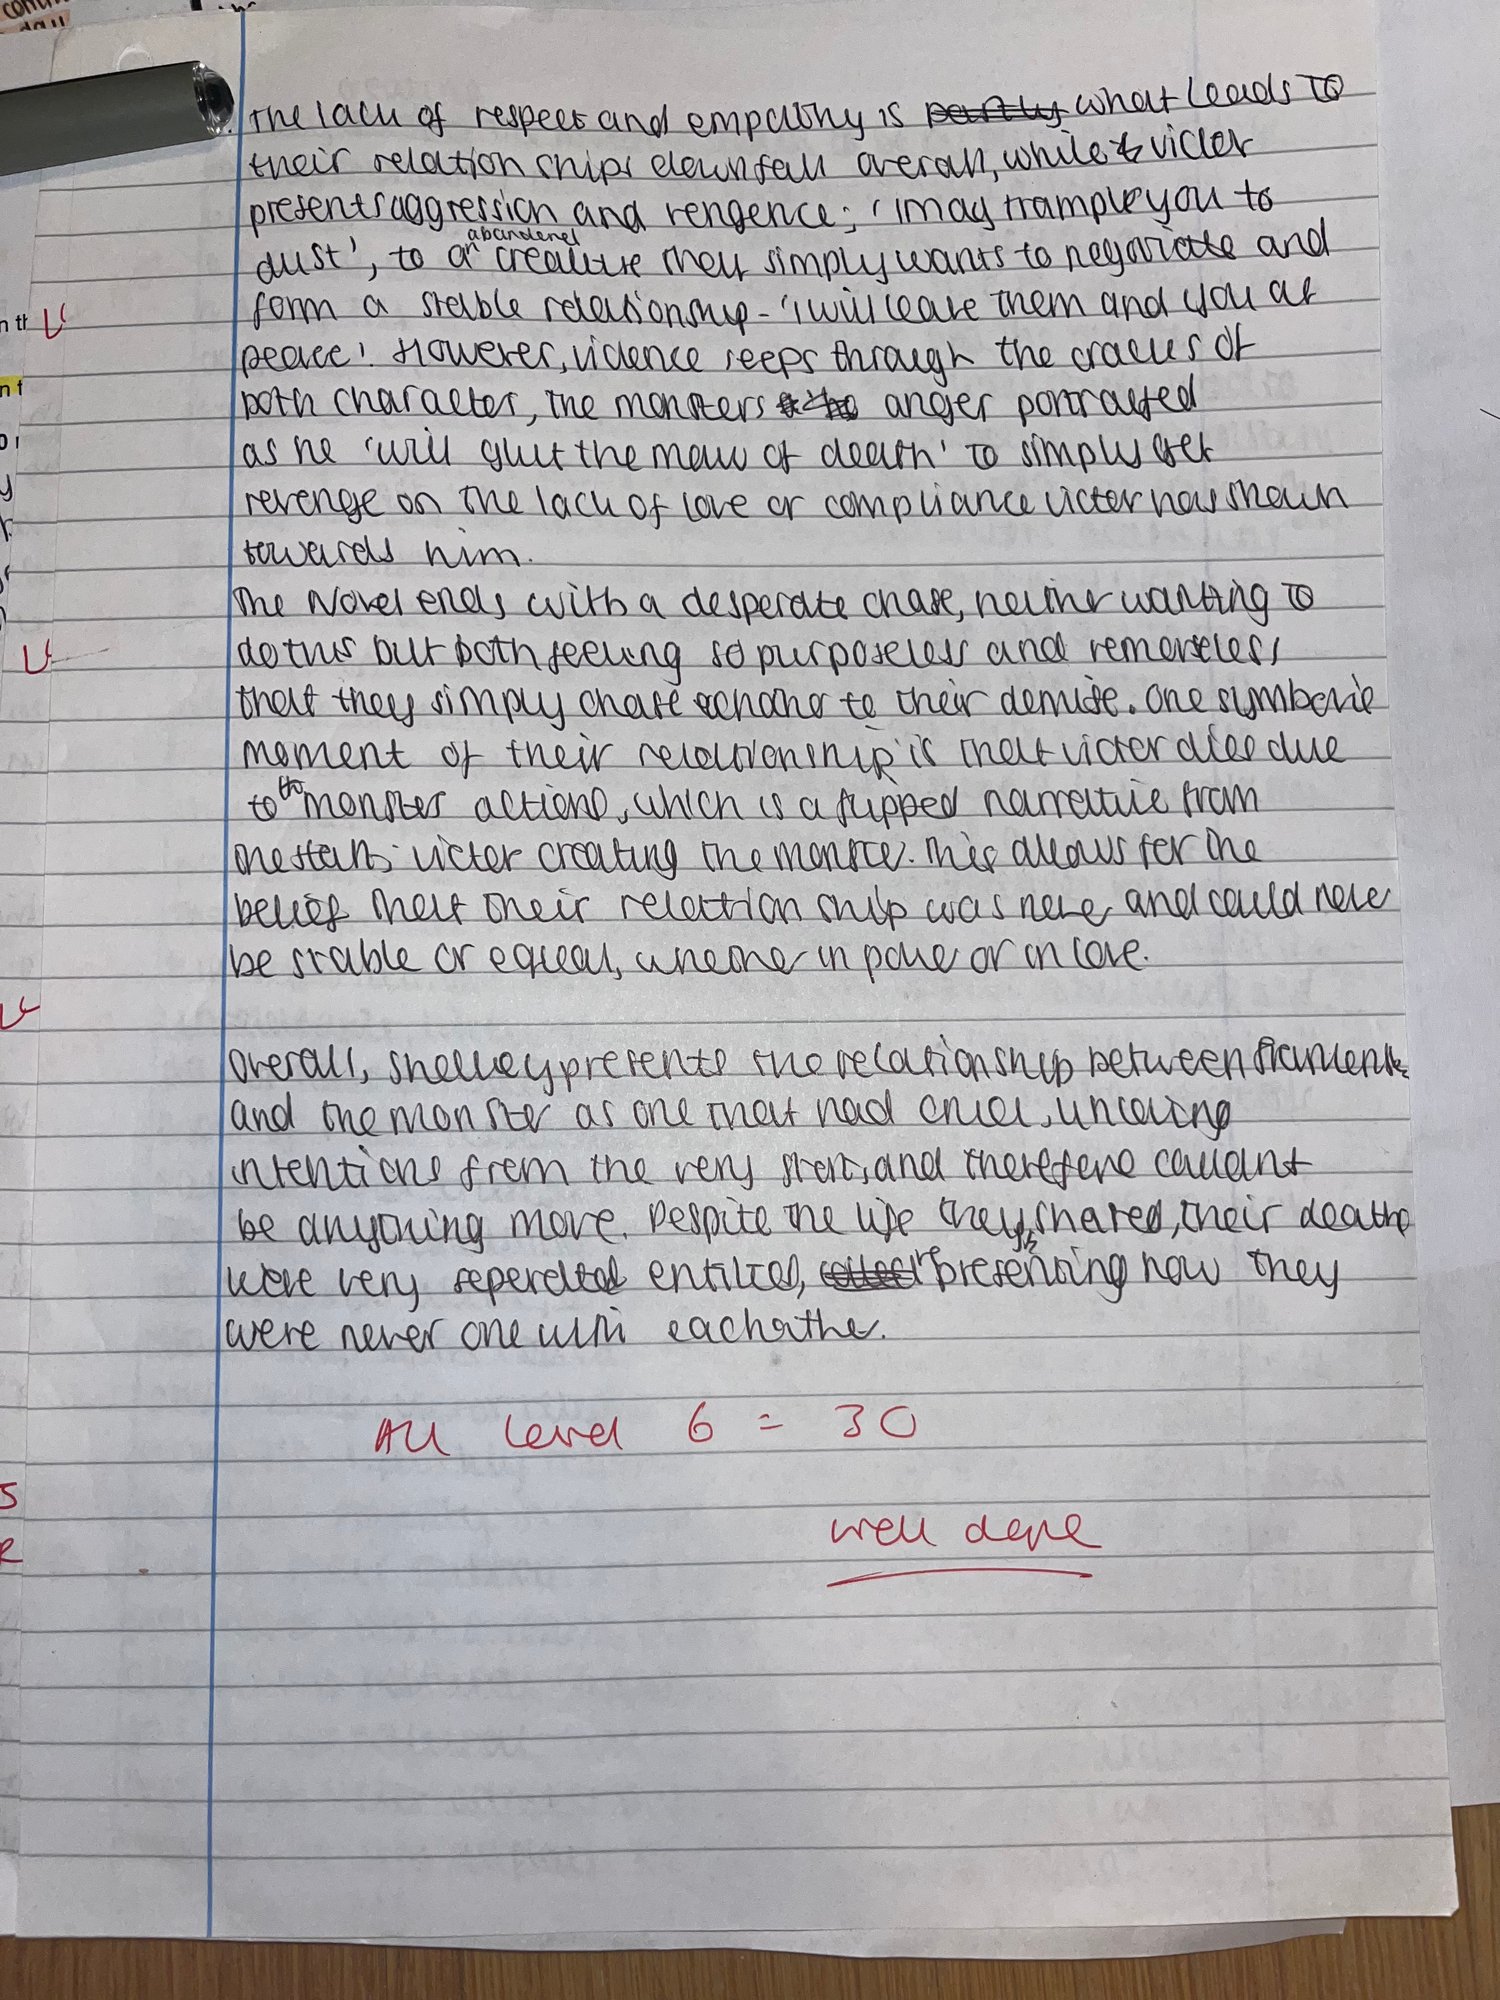 The lack of respect and empathy is partly what leads to
their relationships downfall overall, while victor
presents aggression and vengence; 'I may trample you to
dust', to an abandoned creature that simply wants to negotiate and
form a stable relationship - 'I will leave them and you at
peace'. However, violence seeps through the cracks of
both character, the monsters anger portrayed
as he 'will glut the maw of death' to simply get
revenge on the lack of love or compliance victor has shown
towards him.
The Novel ends with a desperate chase, neither wanting to
do this but both feeling so purposeless and remorseless,
that they simply chase eachother to their demise. One symbolic
moment of their relationship is that victor dies due
to the monster actions, which is a flipped narrative from
the start; victor creating the monster. This allows for the
belief that their relationship was never and could never
be stable or equal, whether in power or in love.
Overall, Shelley presents the relationship between
and the monster as one that had cruel, uncaring
intentions from the very start, and therefore couldnt
be anything more. Despite the life they shared, their deaths
were very seperated entities, representing how they
were never one with eachother.
All level 6 = 30
well done